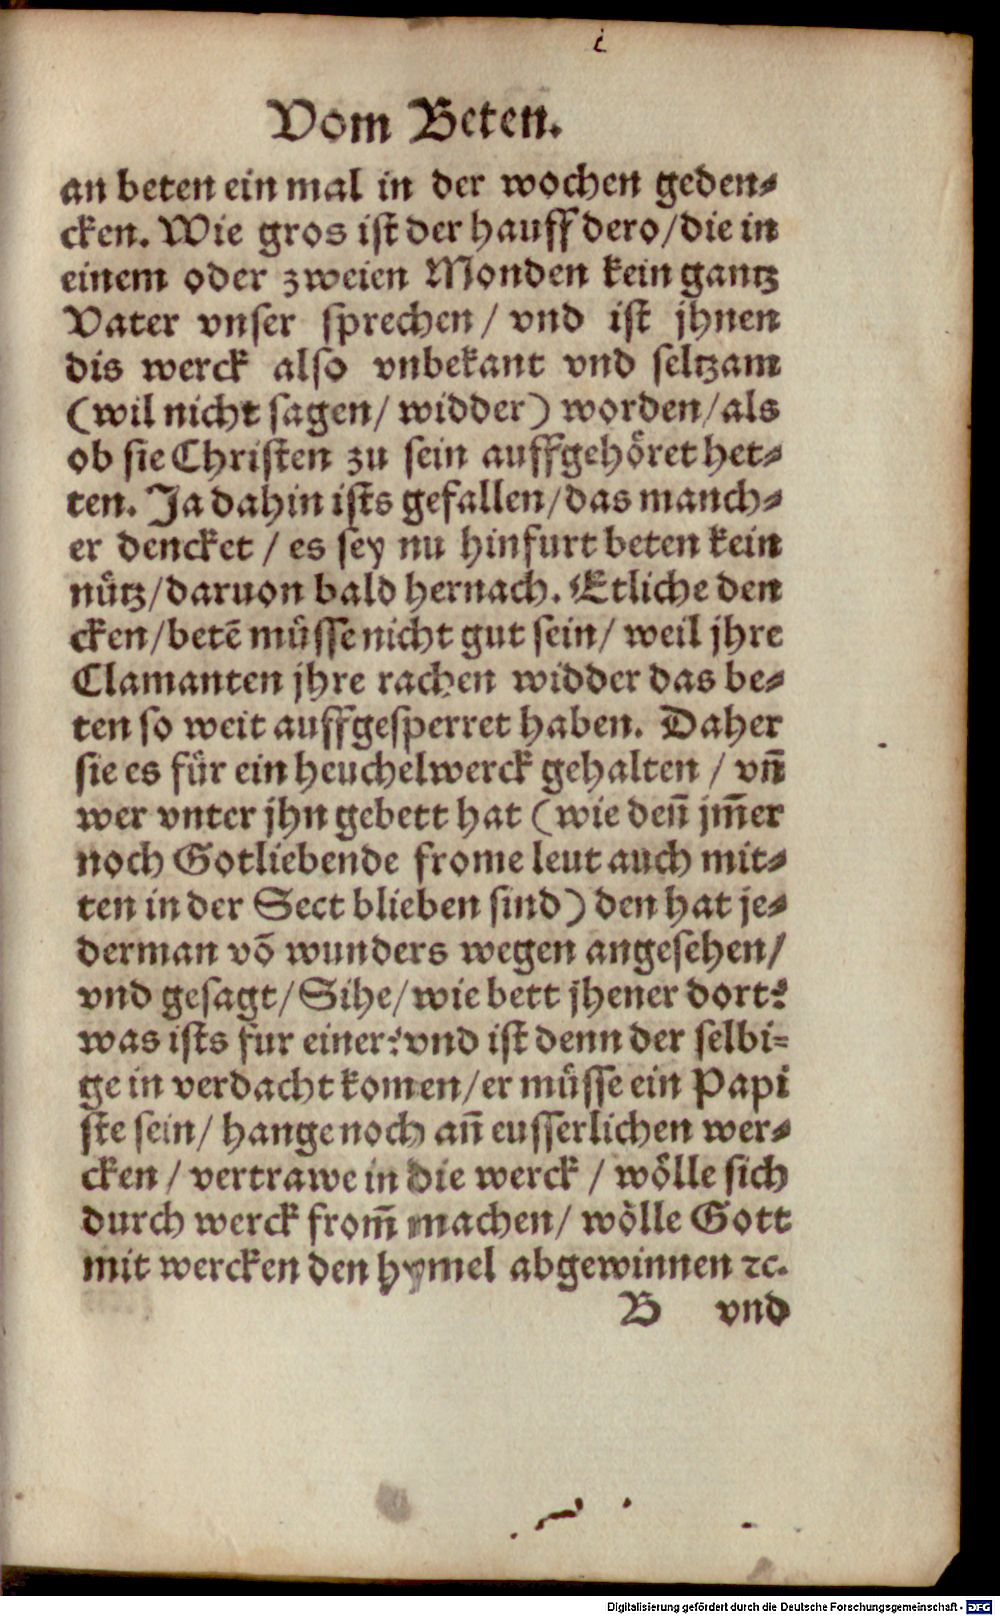 i
Vom Beten.
an beten ein mal in der wochen geden⸗
cken. Wie gros ist der hauff dero/die in
einem oder zweien Monden kein gantz
Vater vnser sprechen/ vnd ist jhnen
dis werck also vnbekant vnd seltzam
(wil nicht sagen/ widder) worden/als
ob sie Christen zu sein auffgehöret het⸗
ten. Ja dahin ists gefallen/das manch⸗
er dencket / es sey nu hinfurt beten kein
nütz/daruon bald hernach. Etliche den
cken/betē müsse nicht gut sein/ weil jhre
Clamanten jhre rachen widder das be⸗
ten so weit auffgesperret haben. Daher
sie es für ein heuchelwerck gehalten / vn̄
wer vnter jhn gebett hat (wie den̄ jm̄er
noch Gotliebende frome leut auch mit⸗
ten in der Sect blieben sind) den hat je⸗
derman vō wunders wegen angesehen/
vnd gesagt/Sihe/wie bett jhener dort?
was ists fur einer? vnd ist denn der selbi⸗
ge in verdacht komen/er müsse ein Papi
ste sein/ hange noch an̄ eusserlichen wer⸗
cken / vertrawe in die werck / wölle sich
durch werck from̄ machen/ wölle Gott
mit wercken den hymel abgewinnen ꝛc.
B vnd
Digitalisierung gefördert durch die Deutsche Forschungsgemeinschaft - DFG